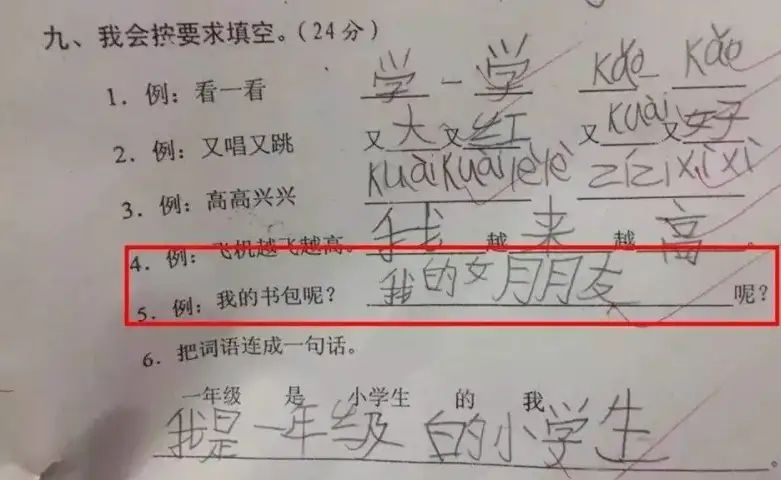 九、我会按要求填空。(24分)
1. 例：看一看 学 一 学 kǎo kǎo
2. 例：又唱又跳 又大又红 又kuài又好
3. 例：高高兴兴 kuàikuàilèlè zízíxìxì
4. 例：飞机越飞越高。 我越来越高。
5. 例：我的书包呢？ 我的女朋友呢？
6. 把词语连成一句话。
一年级 是 小学生 的 我
我是一年级白的小学生。